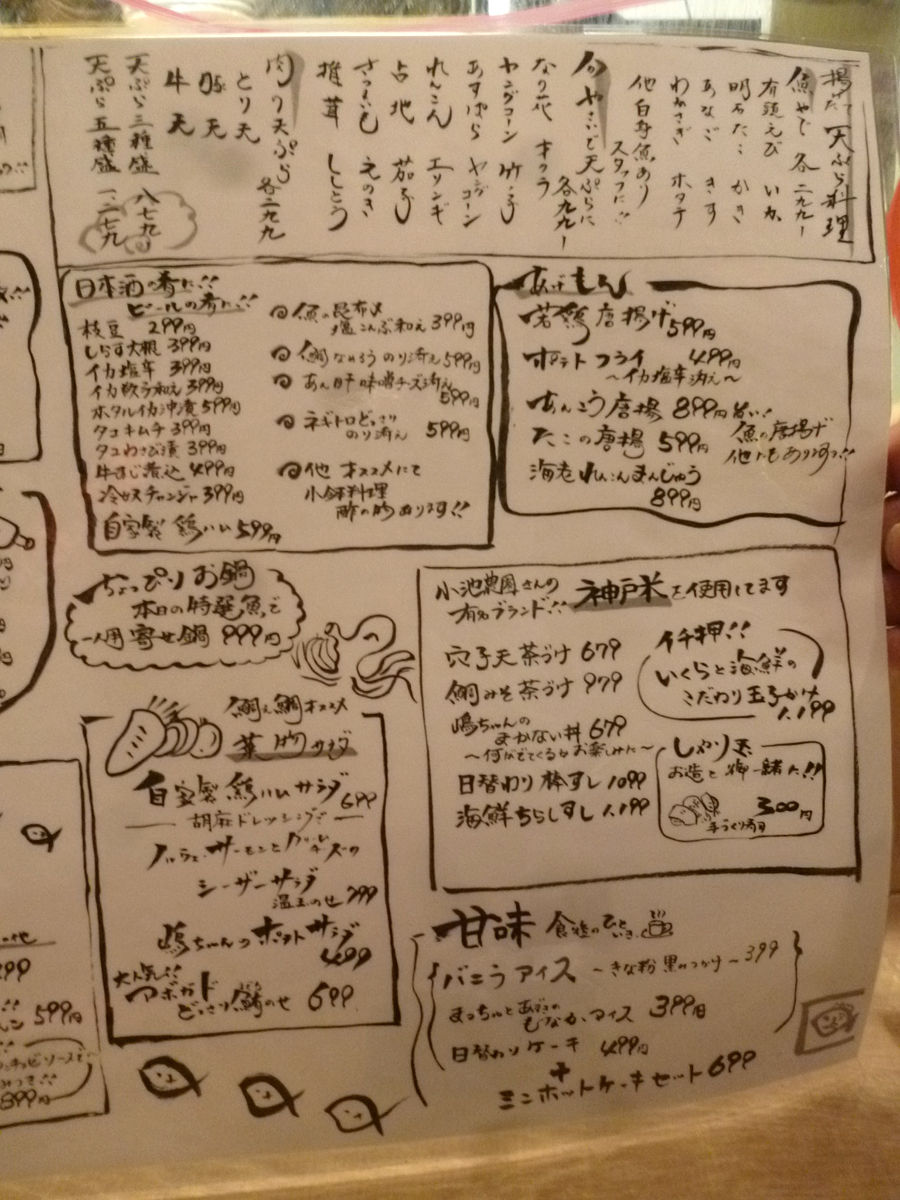 揚げたて天ぷら料理
魚や貝で 各二九九〜
有頭えび いか
明石だこ かき
あなご きす
わかさぎ ホタテ
他白身魚あり
スタッフに!!
やさいで天ぷらに
各九九〜
なす花 オクラ
ヤングコーン 竹ノ子
あすぱら ヤングコーン
れんこん エリンギ
占地 茄子
さつまいも えのき
椎茸 ししとう
肉の天ぷら 各二九九
とり天
豚天
牛天
天ぷら三種盛 八七九
天ぷら五種盛 一二七九
日本酒の肴に!!
ビールの肴に!!
枝豆 299円
しらす大根 399円
イカ塩辛 399円
イカ軟骨和え 399円
ホタルイカ沖漬 599円
タコキムチ 399円
タコわさび漬 399円
牛すじ煮込 499円
冷せんチャンジャ 399円
自家製 鶏ハム 599円
魚の昆布〆
塩こんぶ和え 399円
鯛なめろう のり添え 599円
あん肝味噌チーズ添え
599円
ネギトロどっさり
のり添え 599円
他オススメにて
小鉢料理
酢の物あります!!
あげもん
若鶏唐揚げ 599円
ポテトフライ 499円
〜イカ塩辛添え〜
あんこう唐揚 899円 旨い!
たこの唐揚 599円
魚の唐揚げ
他にもあります!!
海老れんこんまんじゅう
899円
ちょっぴりお鍋
本日の特選魚で
一人用 寄せ鍋 999円
小池農園さんの
有名ブランド!! 神戸米を使用してます
穴子天茶づけ 679
鯛みそ茶づけ 979
嶋ちゃんの
まかない丼 679
〜何がでてくるかお楽しみに〜
日替わり棒すし 1099
海鮮ちらしずし 1,199
イチ押!!
いくらと海鮮の
こだわり玉子かけ
1,199
しゃり玉
お造と御一緒に!!
300円
手づくり
鯛と鯛オススメ
菜園サラダ
自家製 鶏ハムサラダ 699
胡麻ドレッシングで
ノルウェーサーモンと
シーザーサラダ
温玉のせ 799
嶋ちゃんのポテトサラダ
499
大人気!!
アボカド
どっさり鮪のせ 699
甘味 食後のひといき
バニラアイス 〜きな粉黒みつかけ〜 399
まっちゃとあずきの
もなかアイス 399円
日替わりケーキ 499円
+
ミニホットケーキセット 699
599円
899円